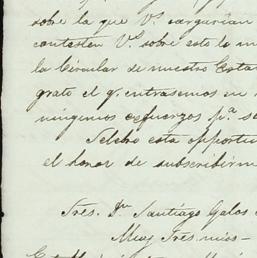 sobre la que Vs. cargarian
contesten Vs. sobre esto lo m
la Circular de nuestro Esta
grato el q. entrasemos en
ningunos esfuerzos pa. s
Selebro esta opportu
el honor de subscribirm
Sres. Dn. Santiago Galos
Muy Sres. mios -